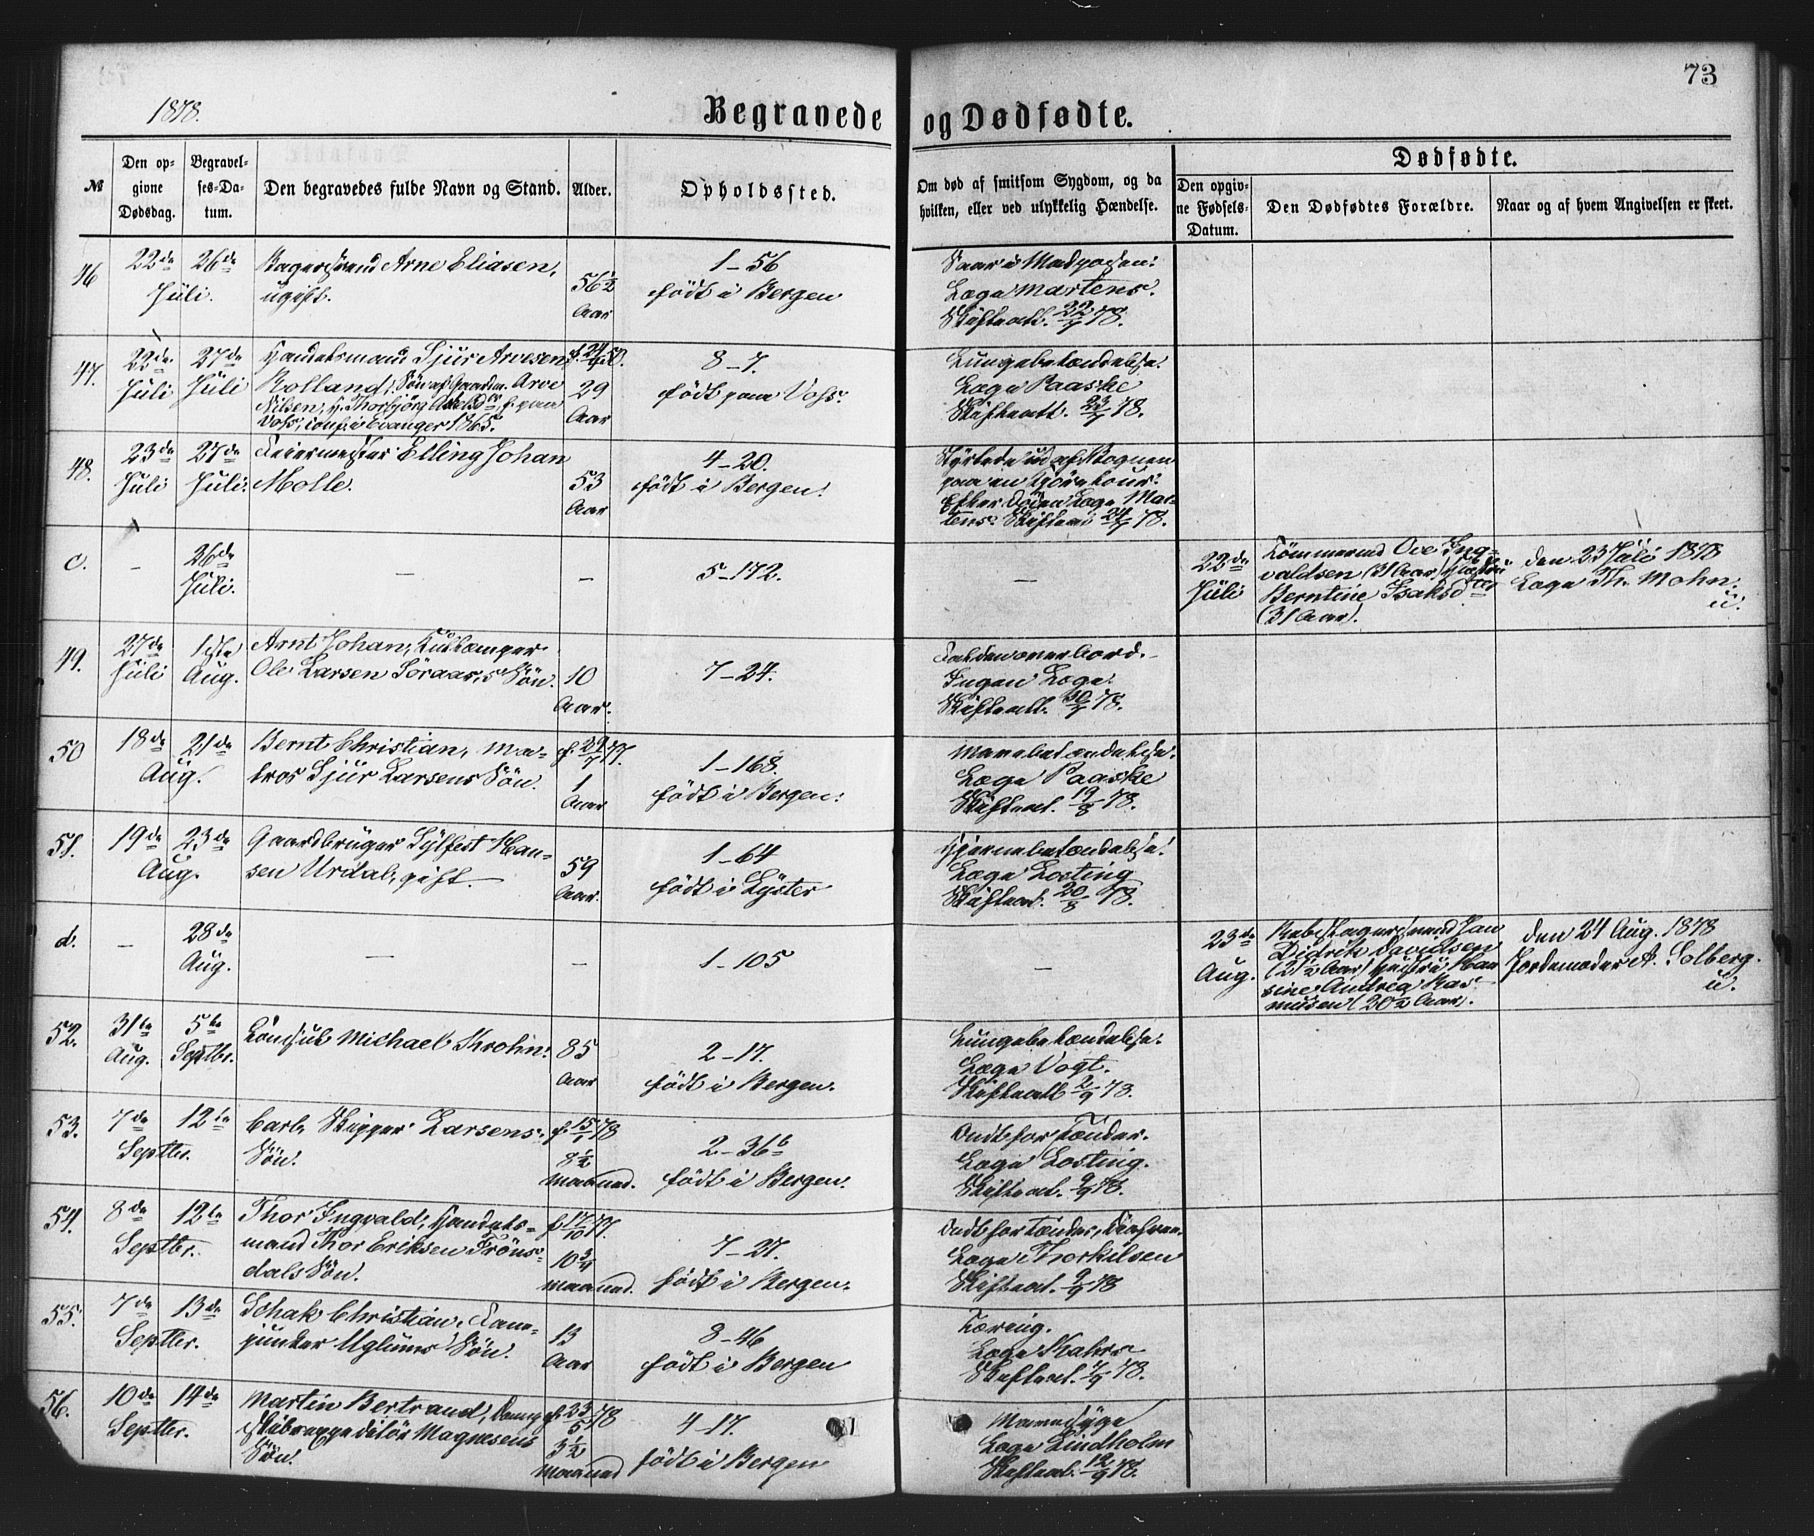 73
1878.
Begravede og Dødfødte.
№
Den opgivne Dødsdag.
Begravelses-Datum.
Den begravedes fulde Navn og Stand.
Alder.
Opholdssted.
Om død af smitsom Sygdom, og da hvilken, eller ved ulykkelig Hændelse.
Dødfødte.
Den opgivne Fødsels-Datum.
Den Dødfødtes Forældre.
Naar og af hvem Angivelsen er skeet.
46
22de Juli.
26de
Bagersvend Arne Eliasen,
ugift.
56½ Aar
1-56
født i Bergen
Saar i
Læge Martens.
Skifteatt. 22/7 78.
47.
22de Juli
27de Juli
Handelsmand Sjur Arvesen
Rolland, Søn af Gaardm. Arve
Nilsen,
Voss, conf. i Evanger 1865.
29 Aar
8-7.
født paa Voss.
Lungebetændelse.
Læge Paaske
Skifteatt. 23/7 78.
48.
23de Juli
27de Juli.
Feiermester Elling Johan
Molle.
53 Aar
4-20.
født i Bergen.
Styrtede ud af Vognen
paa en Kjøretour.
Efter Døden Læge Mar-
tens. Skifteat 24/7 78.
c.
-
26de Juli.
-
-
5-172.
-
22de Juli
Tømmermd Ove Ing-
valdsen (31 Aar)
Berntine Isaksdtr
(31 Aar).
den 23 Juli 1878
Læge Th. Mohn.
u.
49.
27de Juli
1ste Aug.
Arnt Johan,
Ole Larsen Søraas's Søn.
10 Aar.
7-24.
Falden over bord.-
Ingen Læge.
Skifteatt. 30/7 78.
50
18de Aug.
21de
Bernt Christian, Ma-
tros Sjur Larsens Søn.
f. 29/7 77.
1 Aar
1-168
født i Bergen.
Mavebetændelse.
Læge Paaske
Skifteat. 19/8 78.
51.
19de Aug.
23de
Gaardbruger Sylfest Han-
sen Urdal, gift.-
59 Aar.
1-64
født i Lyster
Hjernebetændelse.
Læge Losting
Skifteat. 20/8 78.
d.
-
28de Aug.
-
-
1-105
-
23de Aug.
Rebslagersvend Jan
Didrik Davidsen
Hustru Han
sine Andrea Ras-
musen (20½ Aar).
den 24 Aug. 1878
Jordemoder A. Solberg.
u.
52.
31te Aug.
5te Septbr.
Konsul Michael Krohn.
85 Aar
2-17.
født i Bergen.
Lungebetændelse.
Læge Vogt.
Skifteatt 2/9 78.
53.
7de Septbr.
12te
Carl, Skipper Larsens
Søn.
f. 15/1 78
8½ Maaned.
2-31b
født i Bergen.
Ondt for Tænder.
Læge Losting.
Skifteat. 9/9 78.
54.
8de Septbr.
12te
Thor Ingvald, Handels-
mand Thor Eriksen Frøns-
dals Søn.
f. 17/10 77.
10¾ Maaned.
7-27.
født i Bergen.
Ondt for Tænder,
Læge Thorkilsen
Skifteat. 9/9 78
55.
7de Septbr.
13de
Schak Christian,
Uglums Søn.
13 Aar
8-46
født i Bergen
Tæring.
Læge Kahrs
Skifteat. 7/9 78.
56.
10de Septbr.
14de
Martin Bertrand, Damp-
skibsexpeditør Magnesens
Søn.
f. 23/5 78
3½ Maaned
4-17.
født i Bergen
Mavesyge
Læge Lindholm
Skifteat. 12/9 78.